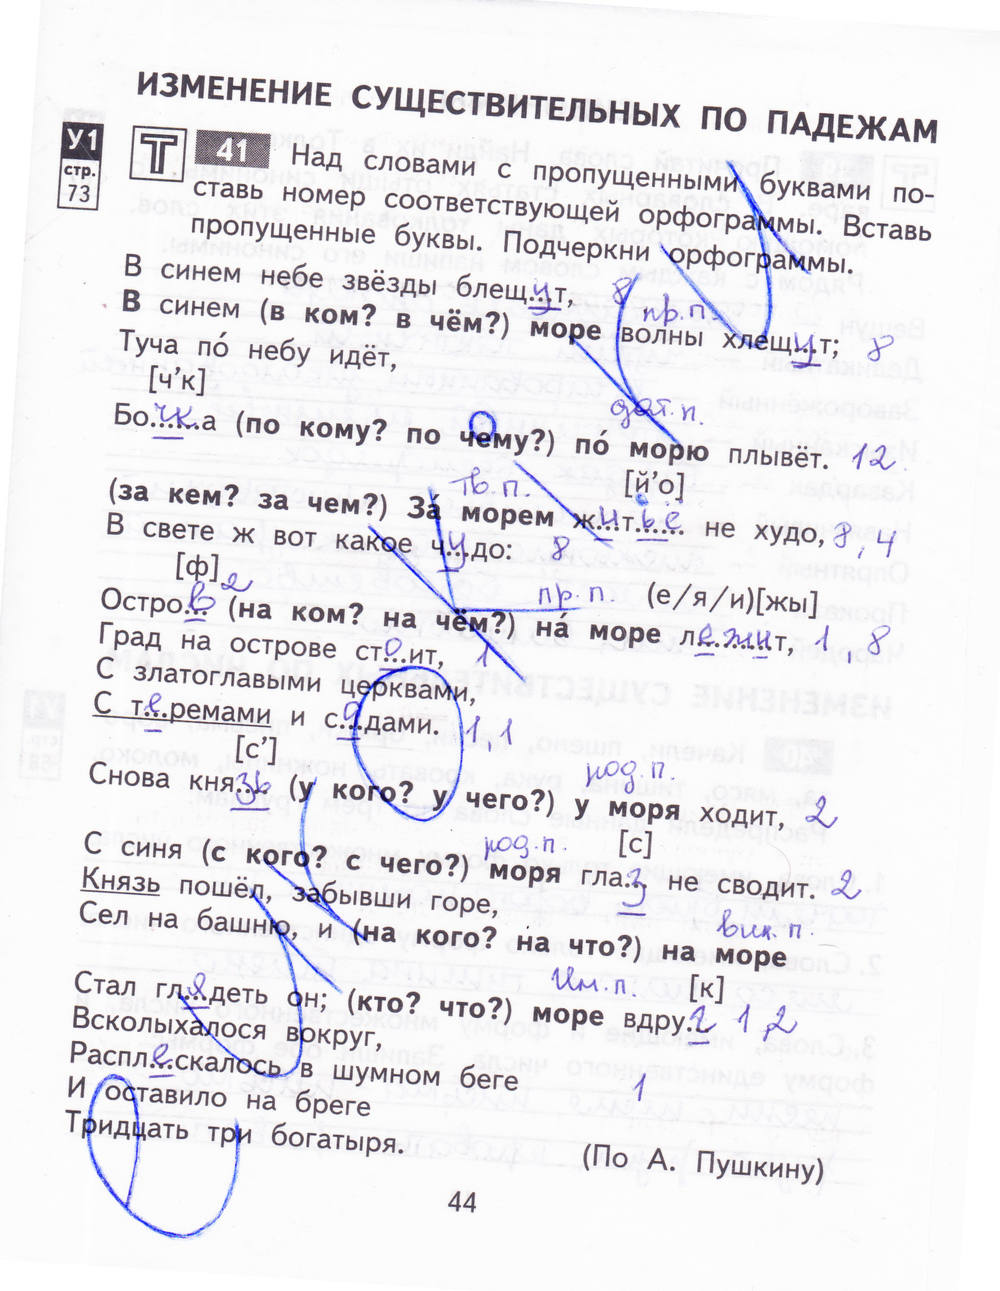 ИЗМЕНЕНИЕ СУЩЕСТВИТЕЛЬНЫХ ПО ПАДЕЖАМ
У1
стр.
73
Т 41 Над словами с пропущенными буквами по-
ставь номер соответствующей орфограммы. Вставь
пропущенные буквы. Подчеркни орфограммы.
В синем небе звёзды блещут, 8
пр.п.
В синем (в ком? в чём?) море волны хлещут; 8
Туча по́ небу идёт,
[ч’к]
дат.п.
Бочка (по кому? по чему?) по́ морю плывёт. 12
тв.п. [й’о]
(за кем? за чем?) За́ морем житьё не худо, 8,4
В свете ж вот какое чудо: 8
[ф] 2 пр.п. (е/я/и)[жы]
Остров (на ком? на чём?) на́ море лежит, 1,8
Град на острове стоит, 1
С златоглавыми церквами,
С теремами и садами. 1,1
[с’] род.п.
Снова князь (у кого? у чего?) у моря ходит, 2
род.п. [с]
С синя (с кого? с чего?) моря глаз не сводит. 2
Князь пошёл, забывши горе,
вин.п.
Сел на башню, и (на кого? на что?) на море
Им.п. [к]
Стал глядеть он; (кто? что?) море вдруг 1,2
Всколыхалося вокруг,
Расплескалось в шумном беге 1
И оставило на бреге
Тридцать три богатыря.
(По А. Пушкину)
44